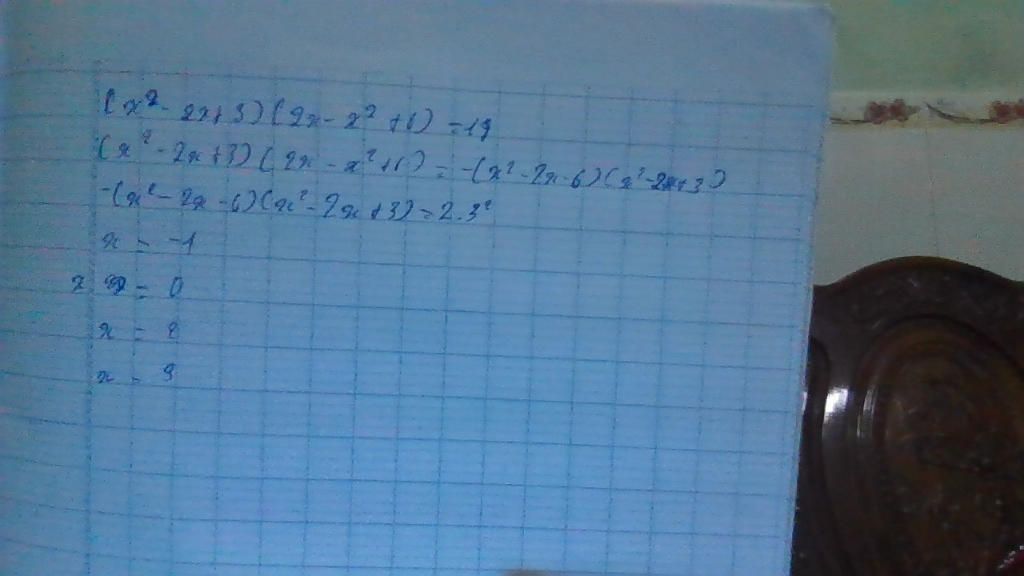 (x² - 2x+3)(2x - x² +6) = 18
(x² - 2x+3)(2x - x²+6) = -(x² - 2x-6)(x²-2x+3)
-(x² - 2x - 6)(x² - 2x + 3) = 2.3²
x = -1
x = 0
x = 2
x = 3